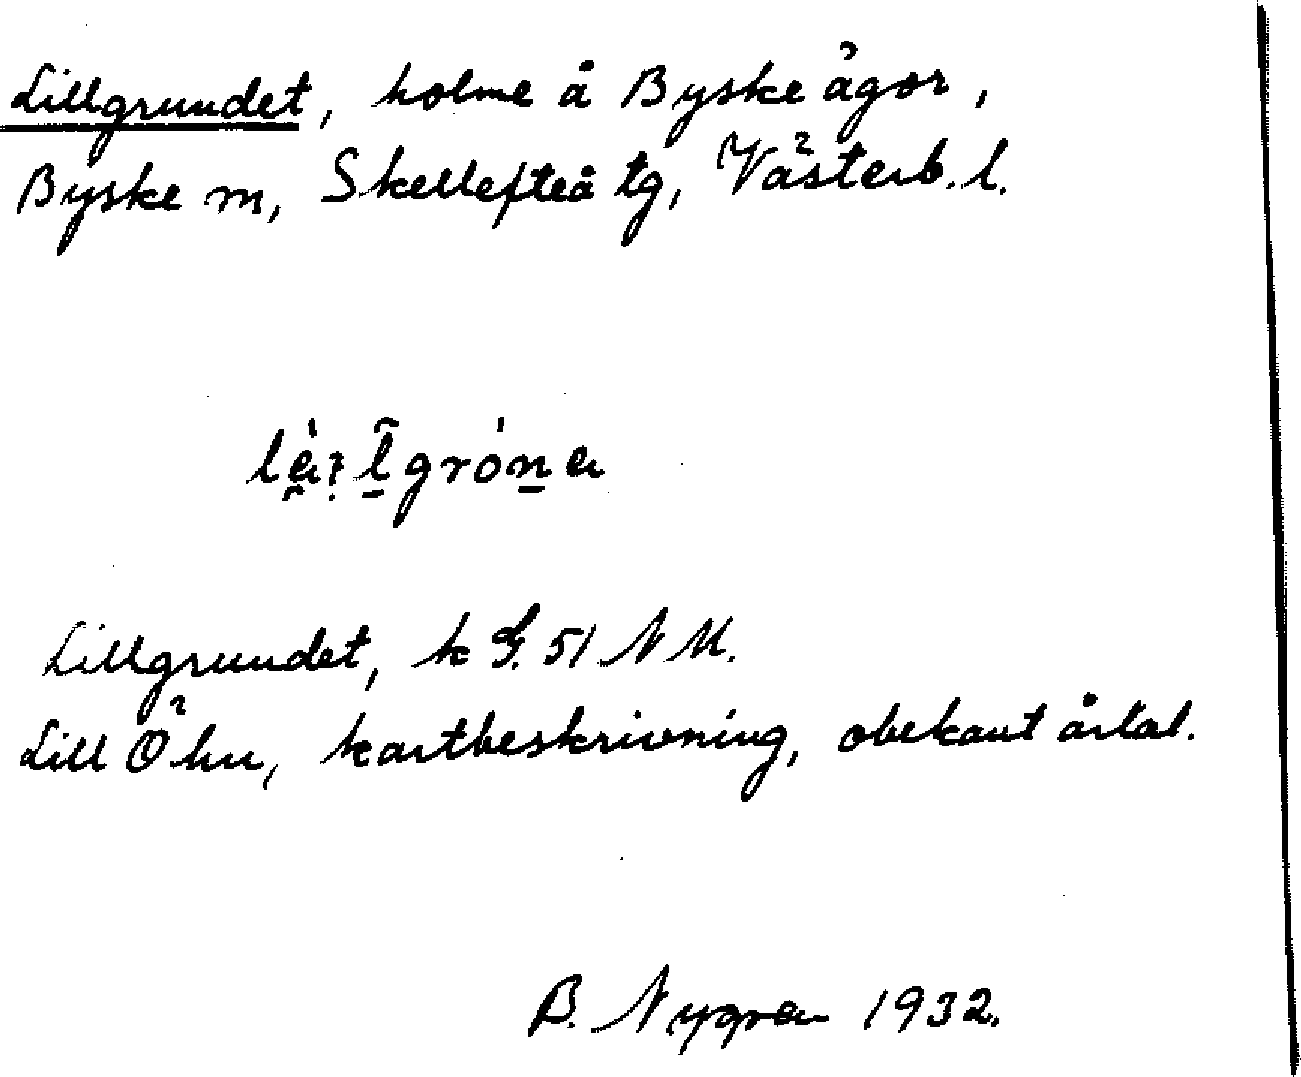 Lillgrundet, holme å Byske ägor,
Byske sn, Skellefteå tg, Västerb. l.
Lillgrundet, k 51 NM.
Lill Öhn, kartbeskrivning, obekant årtal.
B. Nygren 1932.